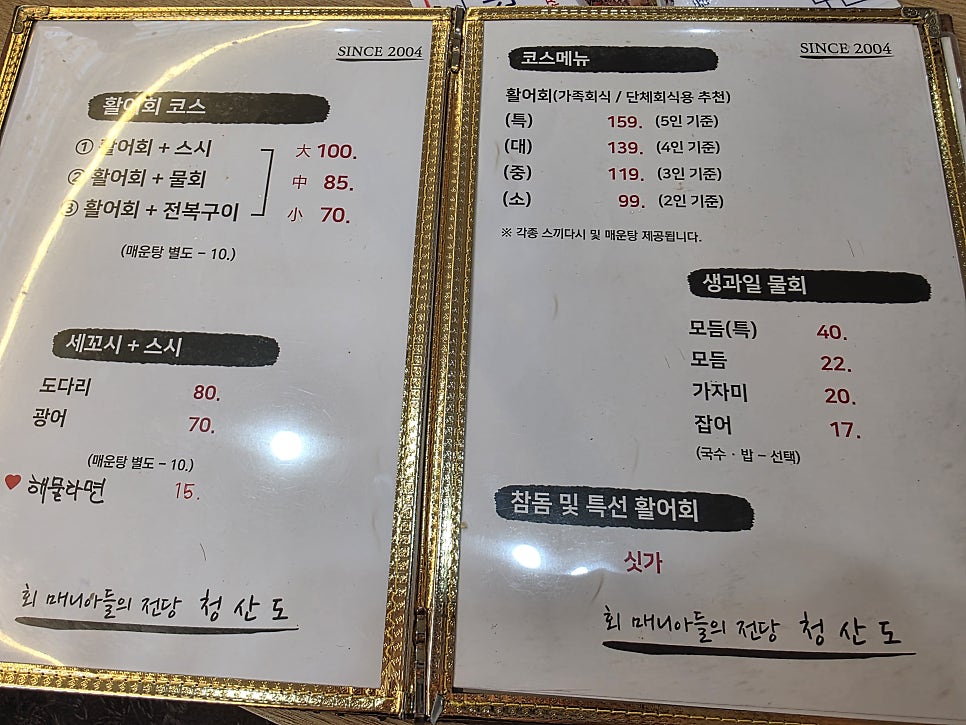 SINCE 2004
활어회 코스
① 활어회 + 스시 大 100.
② 활어회 + 물회 中 85.
③ 활어회 + 전복구이 小 70.
(매운탕 별도 - 10.)
세꼬시 + 스시
도다리 80.
광어 70.
(매운탕 별도 - 10.)
해물라면 15.
회 매니아들의 전당 청산도
SINCE 2004
코스메뉴
활어회(가족회식 / 단체회식용 추천)
(특) 159. (5인 기준)
(대) 139. (4인 기준)
(중) 119. (3인 기준)
(소) 99. (2인 기준)
※ 각종 스끼다시 및 매운탕 제공됩니다.
생과일 물회
모듬(특) 40.
모듬 22.
가자미 20.
잡어 17.
(국수 · 밥 - 선택)
참돔 및 특선 활어회
싯가
회 매니아들의 전당 청산도